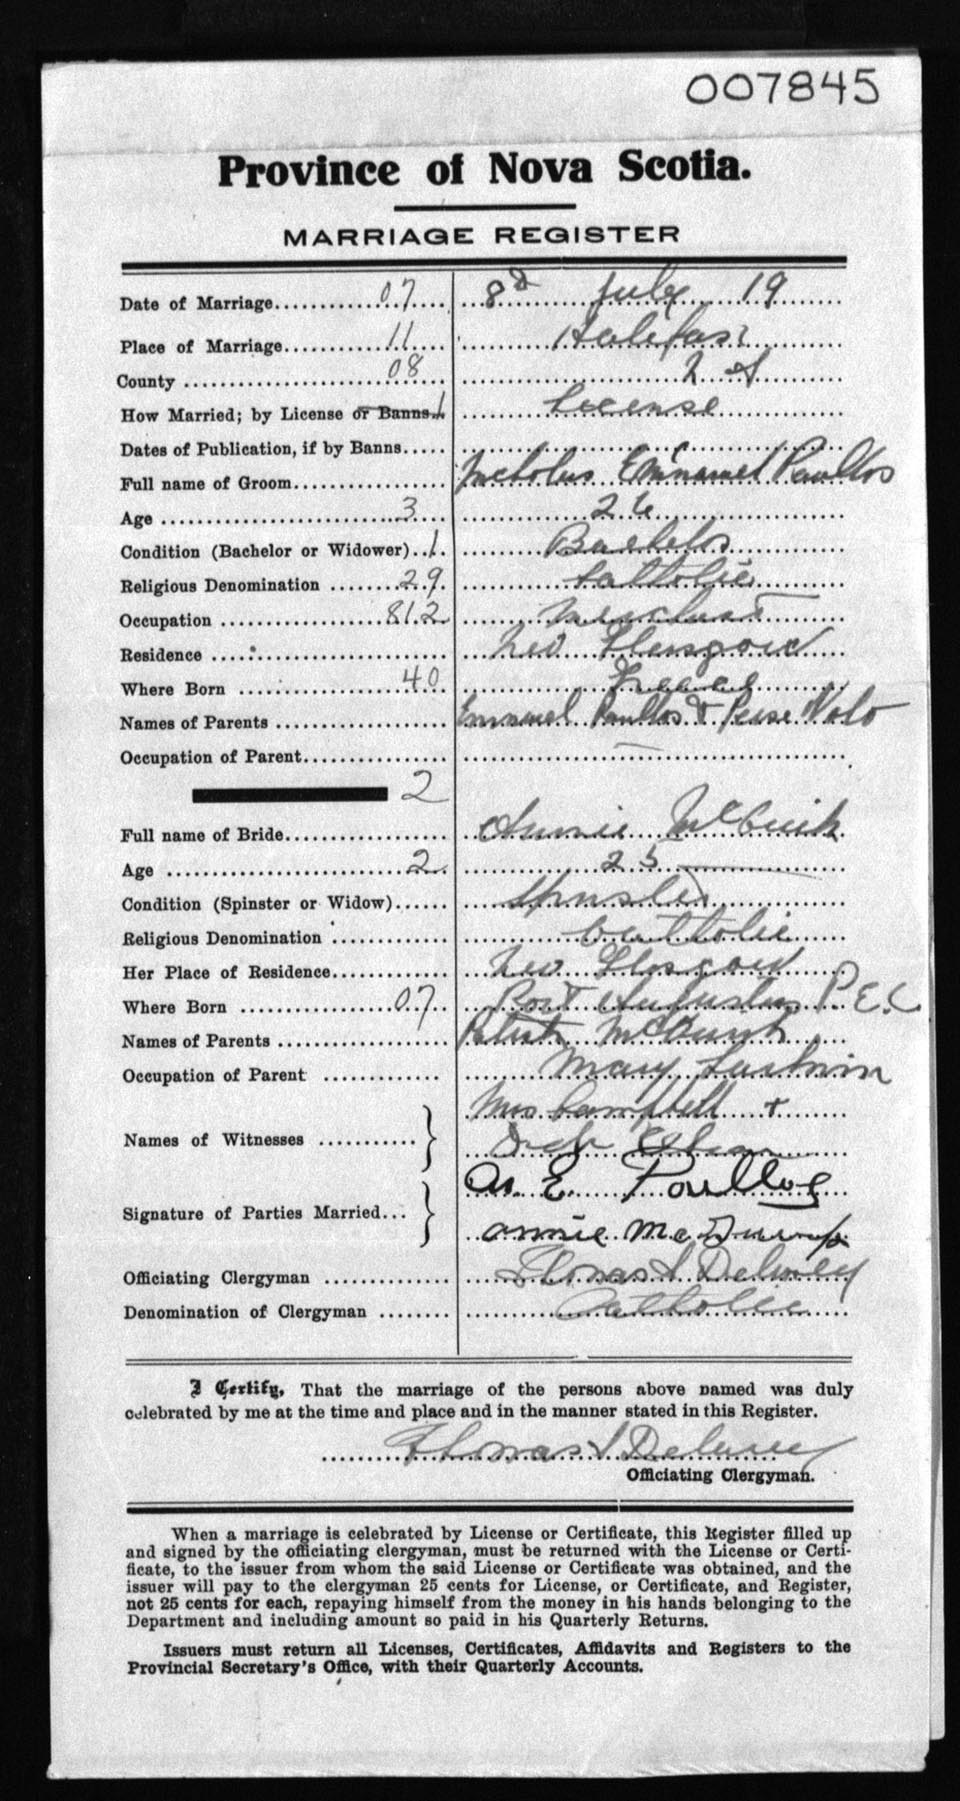 007845
Province of Nova Scotia.
MARRIAGE REGISTER
Date of Marriage 07 8d July 19
Place of Marriage 11 Halifax
County 08
How Married; by License or Banns 1 License
Dates of Publication, if by Banns
Full name of Groom Nicholus Emmanuel Paullos
Age 3 26
Condition (Bachelor or Widower) 1 Bachelor
Religious Denomination 29 Catholic
Occupation 812 Merchant
Residence New Glasgow
Where Born 40 Greece
Names of Parents Emmanuel Paullos &
Occupation of Parent
2
Full name of Bride Annie
Age 2 25
Condition (Spinster or Widow) Spinster
Religious Denomination Catholic
Her Place of Residence New Glasgow
Where Born 07 Port
Names of Parents
Occupation of Parent Mary
Names of Witnesses Mrs Campbell +
Signature of Parties Married N. E. Poullos
Annie
Officiating Clergyman Thomas
Denomination of Clergyman Catholic
I Certify, That the marriage of the persons above named was duly
celebrated by me at the time and place and in the manner stated in this Register.
Thomas
Officiating Clergyman.
When a marriage is celebrated by License or Certificate, this Register filled up
and signed by the officiating clergyman, must be returned with the License or Certi-
ficate, to the issuer from whom the said License or Certificate was obtained, and the
issuer will pay to the clergyman 25 cents for License, or Certificate, and Register,
not 25 cents for each, repaying himself from the money in his hands belonging to the
Department and including amount so paid in his Quarterly Returns.
Issuers must return all Licenses, Certificates, Affidavits and Registers to the
Provincial Secretary's Office, with their Quarterly Accounts.